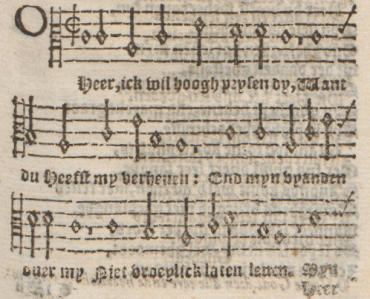 O
Heer, ick wil hoogh prysen dy, Want
du Heefst my verheuen: End myn vyanden
ouer my Niet vroeylick laten leuen. Myn
Heer